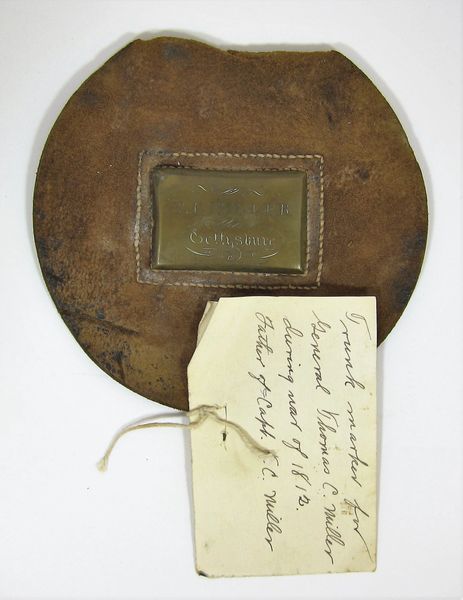 MILLER
Gettysburg
Trunk marker for
General Thomas C. Miller
during war of 1812.
Father of Capt. C. Miller